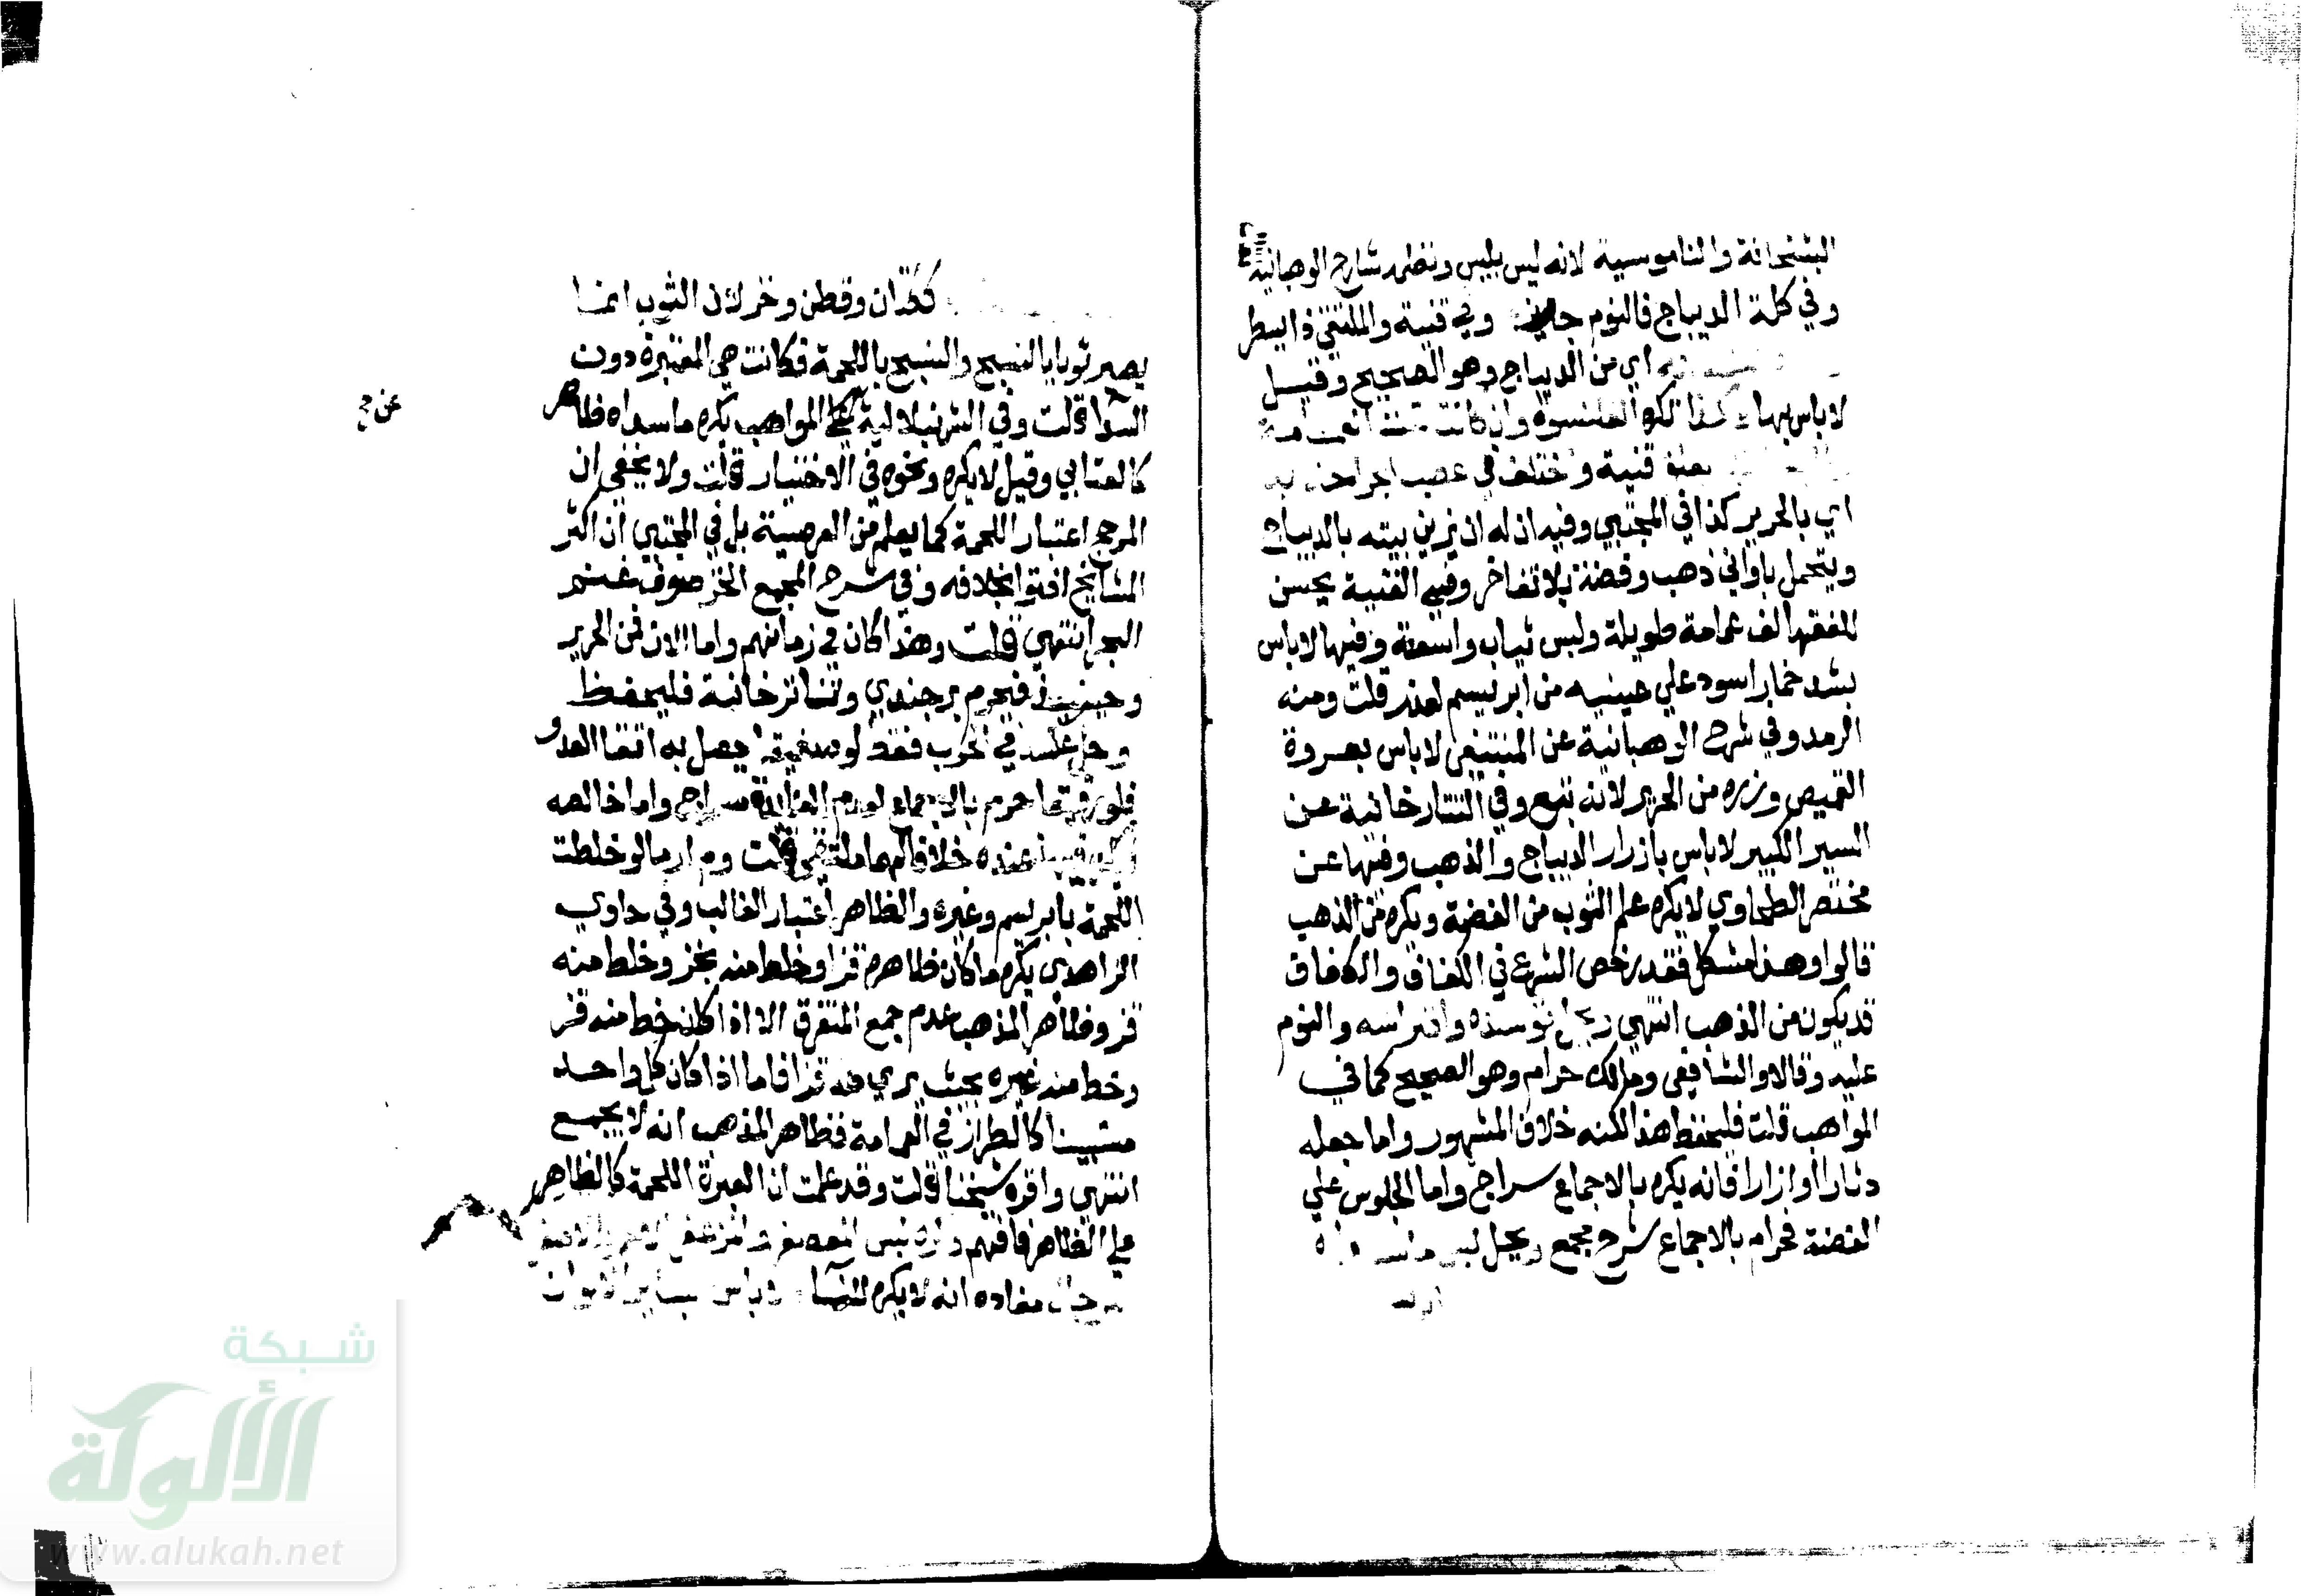 البشخانة والناموسية لانه ليس بلبس ونظمه شارح الوهبانية
وفي كلة الديباج فالنوم جايز وفي قنية والملتقي ذا يسطر
اي من الديباج وهو الصحيح وقيل
لاباس بها وكذا تكره القلنسوة وان كانت تحت العمامة
قنية واختلف في عصب الجراحة به
اي بالحرير كذا في المجتبي وفيه ان له ان يزين بيته بالديباج
ويتجمل باواني ذهب وفضة بلا تفاخر وفي القنية يحسن
للفقها لف عمامة طويلة ولبس ثياب واسعة وفيها لاباس
بشد خمار اسود علي عينيه من ابريسم لعذر قلت ومنه
الرمد وفي شرح الوهبانية عن المنتقي لاباس بعروة
القميص وزره من الحرير لانه تبع وفي التتارخانية عن
السير الكبير لاباس بازرار الديباج والذهب وفيها عن
مختصر الطحاوي لا يكره علم الثوب من الفضة ويكره من الذهب
قالوا وهذا مشكل فقد رخص الشرع في الكفاف والكفاف
قد يكون من الذهب انتهي ويحل توسده وافتراشه والنوم
عليه وقالا والشافعي ومالك حرام وهو الصحيح كما في
المواهب قلت فليحفظ هذا لكنه خلاف المشهور واما جعله
دثارا او ازارا فانه يكره بالاجماع سراج واما الجلوس علي
الفضة فحرام بالاجماع شرح مجمع ويحل لبس ما سداه
ككتان وقطن وخز لان الثوب انما
يصير ثوبا بالنسج والنسج باللحمة فكانت هي المعتبرة دون
السدا قلت وفي الشرنبلالية عن المواهب يكره ما سداه ظاهر
كالعتابي وقيل لا يكره ونحوه في الاختيار قلت ولا يخفي ان
المرجح اعتبار اللحمة كما يعلم من العزمية بل في المجتبي ان اكثر
المشايخ افتوا بخلافه وفي شرح المجمع الخز صوف غنم
البحر انتهي قلت وهذا كان في زمانهم واما الان فمن الحرير
وحينيذ فيحرم برجندي وتتاترخانية فليحفظ
وحل عكسه في الحرب فقط لو صفيقا يحصل به اتقا العدو
فلو رقيقا حرم بالاجماع لعدم الفايدة سراج واما خالصه
فيكره عنده خلافا لهما ملتقي قلت ولم ار ما لو خلطت
اللحمة بابريسم وغيره والظاهر اعتبار الغالب وفي حاوي
الزاهدي يكره ما كان ظاهره قزا او خط منه بخز وخط منه
قز وظاهر المذهب عدم جمع المتفرق الا اذا كان خط منه قز
وخط منه غيره بحيث يري كله قزا فاما اذا كان كل واحد
مستبينا كالطراز في العمامة فظاهر المذهب انه لا يجمع
انتهي واقره شيخنا قلت وقد علمت ان العبرة اللحمة كالظاهر
علي الظاهر فافهم وكره لبس المعصفر والمزعفر الاحمر والاصفر
للرجال مفاده انه لا يكره للنسا ولاباس بساير الالوان
شبكة
الألوكة
www.alukah.net